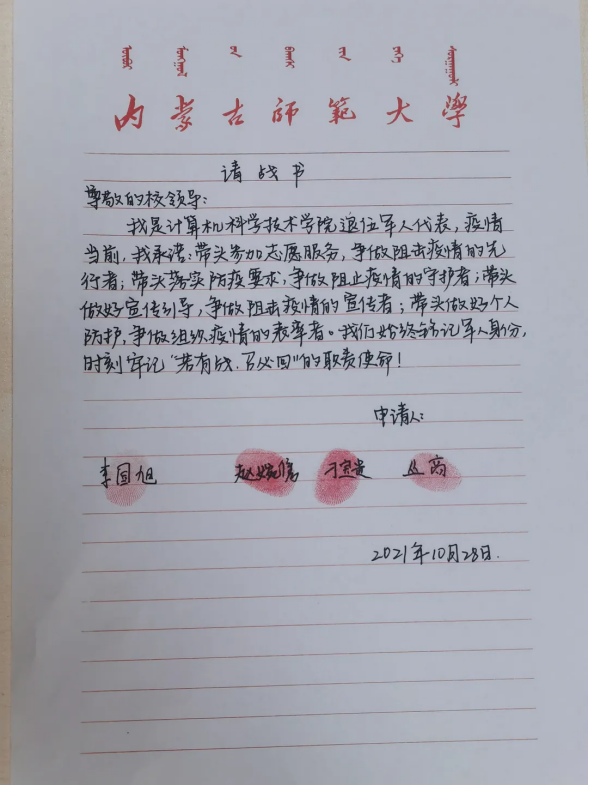 内蒙古師範大學
请战书
尊敬的校领导：
我是计算机科学技术学院退位军人代表，疫情
当前，我承诺：带头参加志愿服务，争做阻击疫情的先
行者；带头落实防疫要求，争做阻止疫情的守护者；带头
做好宣传引导，争做阻击疫情的宣传者；带头做好个人
防护，争做组织疫情的表率者。我们始终牢记军人身份，
时刻牢记“若有战，召必回”的职责使命！
申请人：
李国旭 刁宝贵
2021年10月28日.